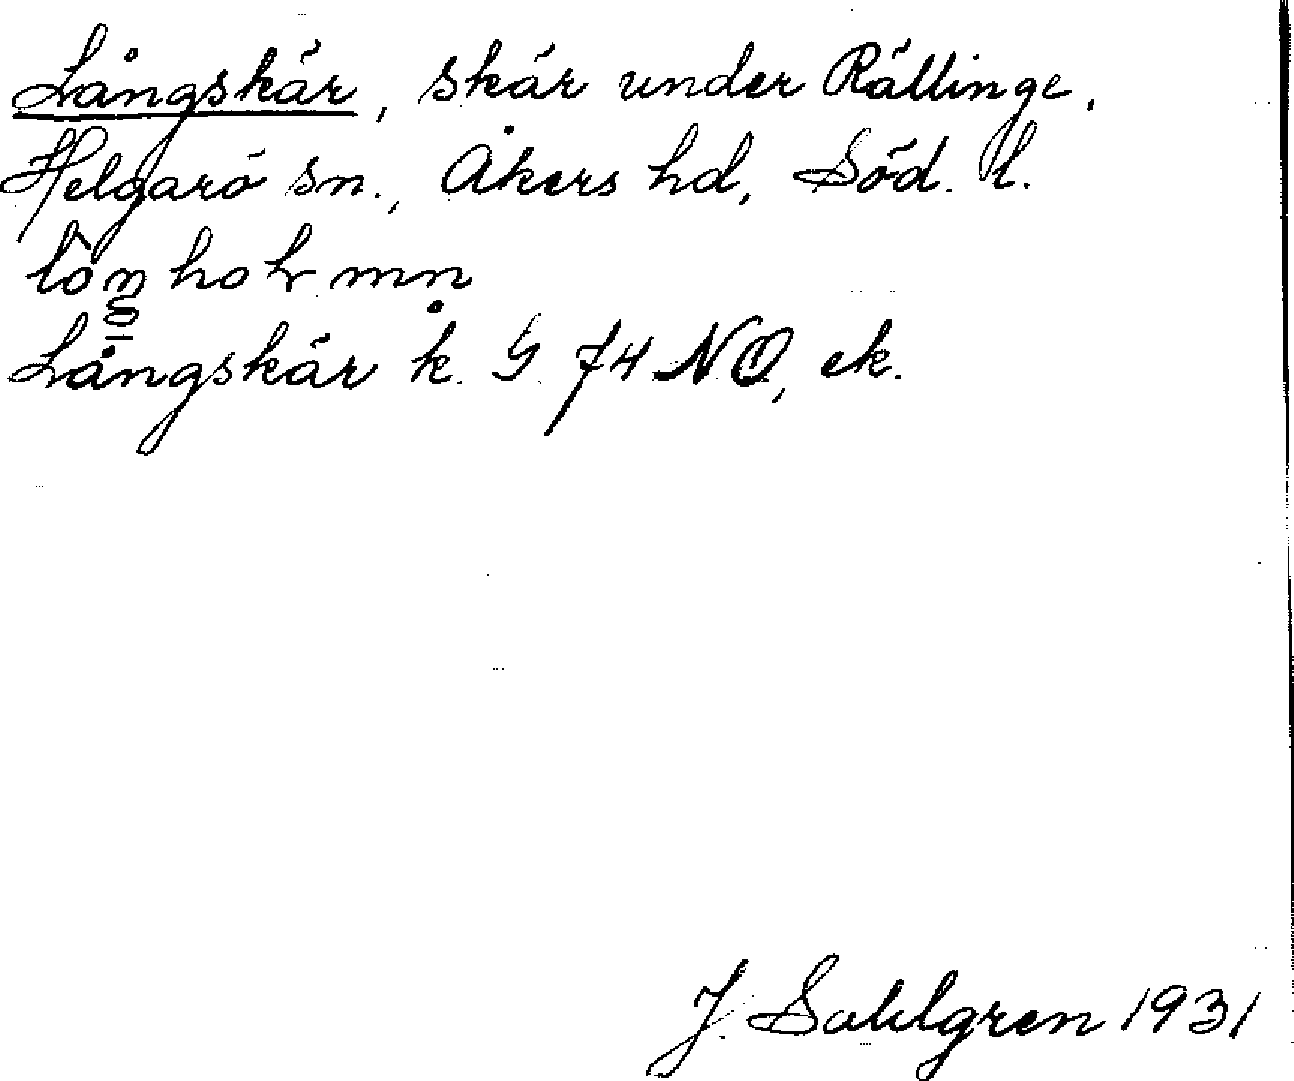 Långskär, skär under Rällinge,
Helgarö sn., Åkers hd, Söd. l.
Långskär k. G 74 NO, ek.
J. Sahlgren 1931